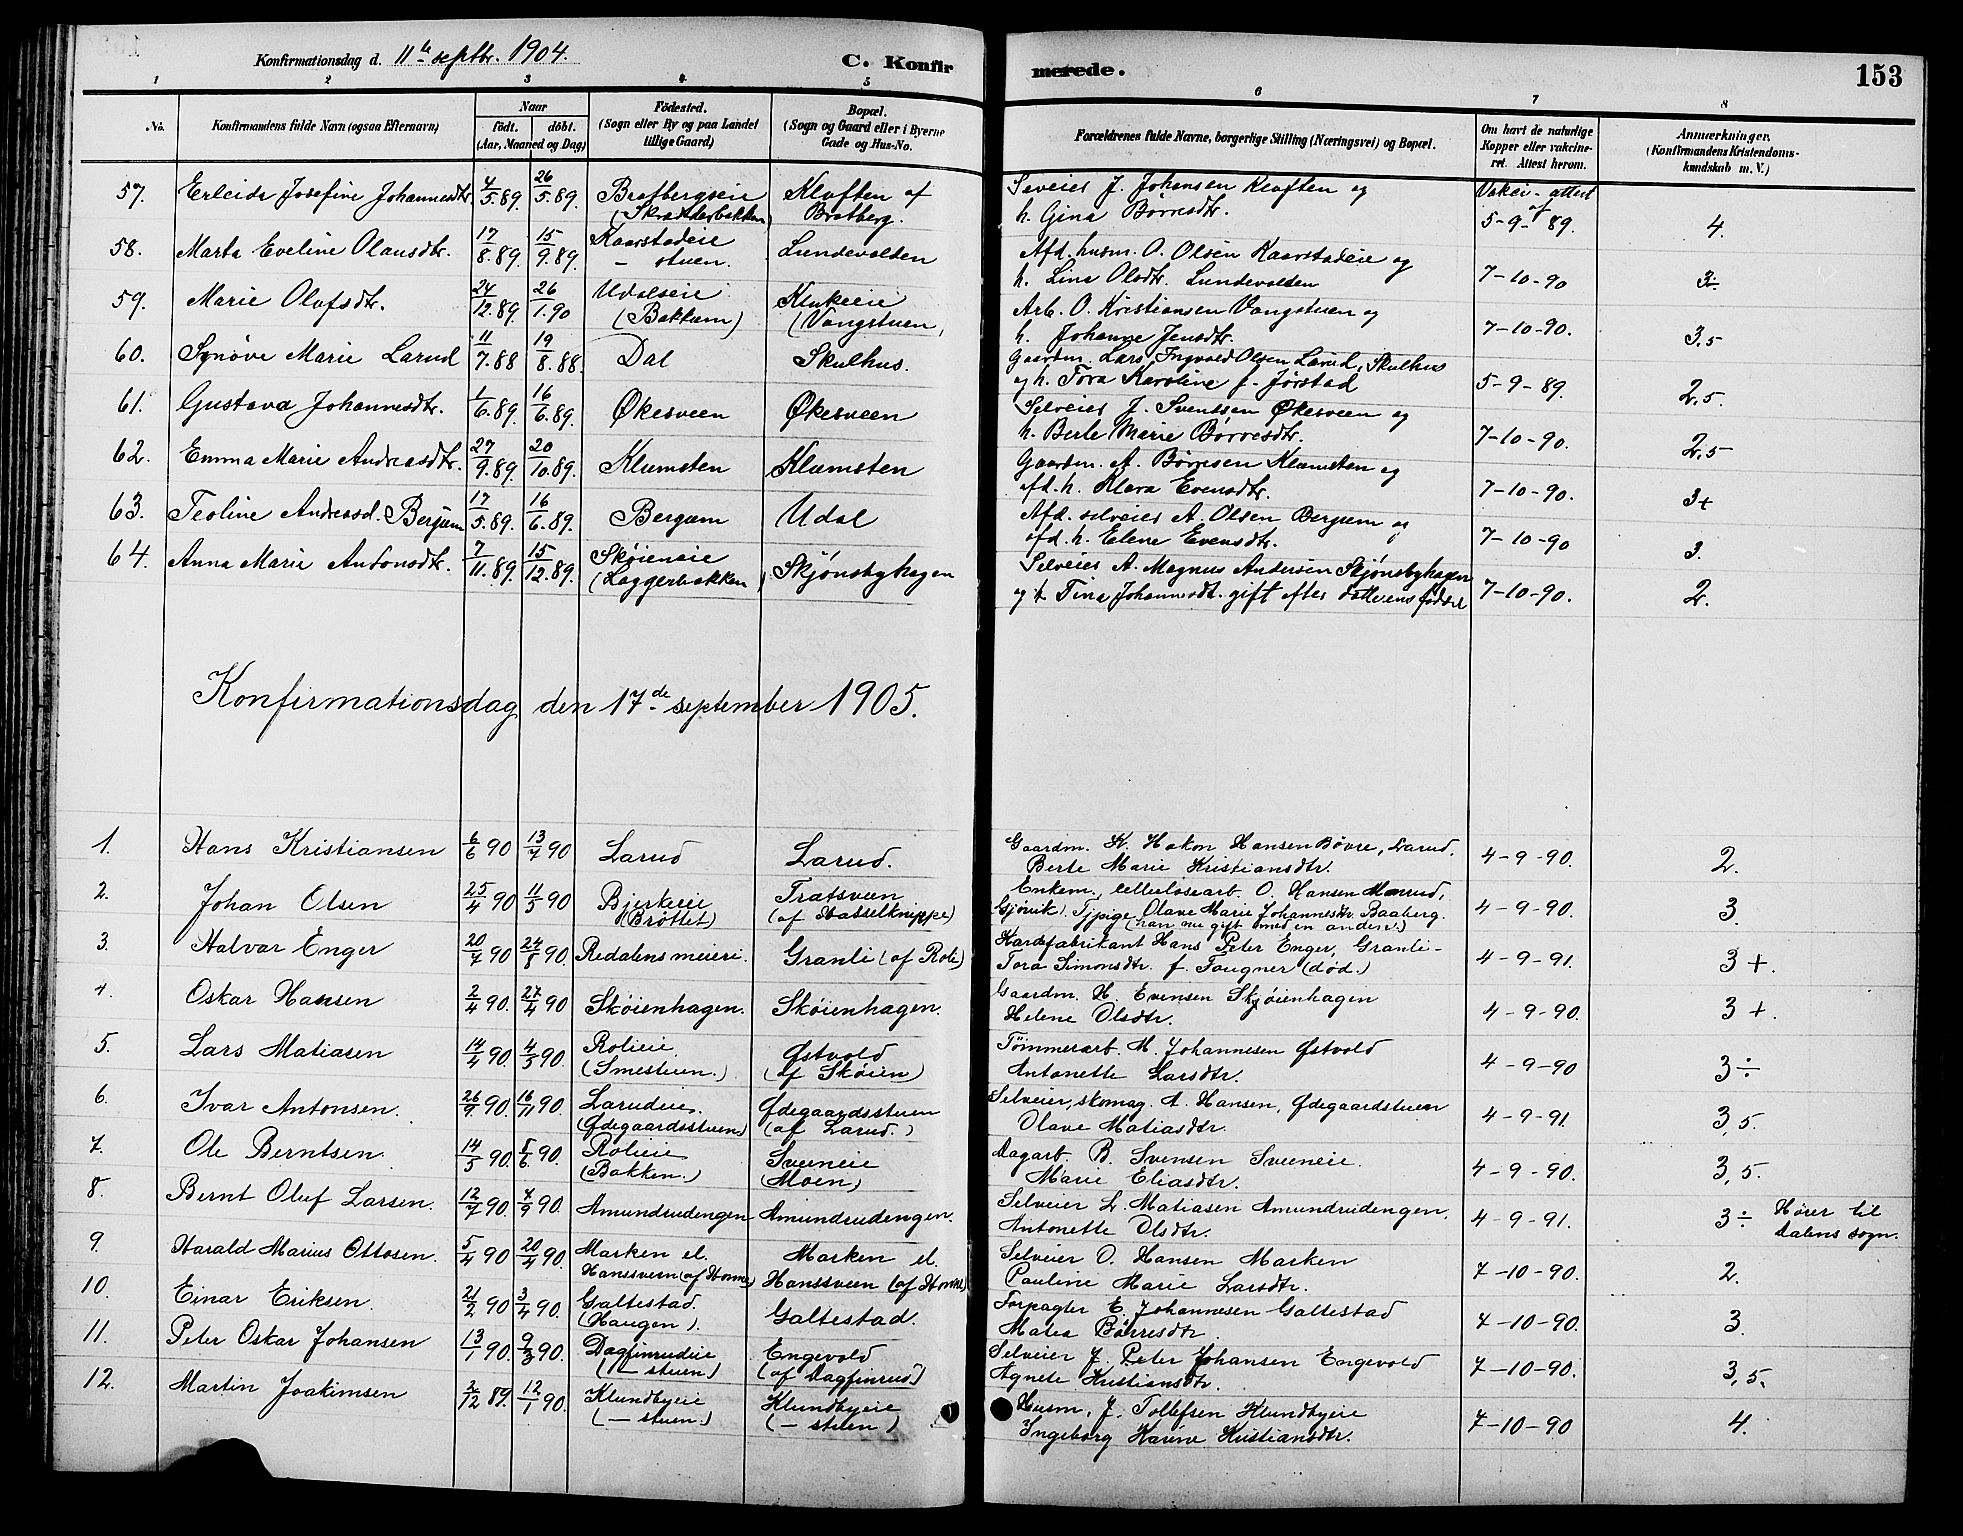 Konfirmationsdag d. 11te septbr. 1904.
C. Konfirmerede.
153
1 2 3 4 5 6 7 8
No.
Konfirmandens fulde Navn (ogsaa Efternavn)
Naar
födt. döbt.
(Aar, Maaned og Dag)
Födested.
(Sogn eller By og paa Landet
tillige Gaard)
Bopæl.
(Sogn og Gaard eller i Byerne
Gade og Hus-No.
Forældrenes fulde Navne, borgerlige Stilling (Næringsvei) og Bopæl.
Om havt de naturlige
Kopper eller vakcine-
ret. Attest herom.
Anmærkninger.
(Konfirmandens Kristendoms-
kundskab m. V.)
57. Erleida Josefine Johannesdtr. 4/5.89. 26/5.89. Bratbergseie Kloften af Selveier J. Johansen Kloften og Vakci- attest
(Skrædderbakken) Bratberg. h. Gina Børresdtr. af 5-9-89. 4.
58. Marta Eveline Olausdtr. 17/8.89. 15/9.89. Kaarstadeie Lundevolden Afd. husm. O. Olsen Kaarstadeie og
– stuen. h. Lina Olsdtr. Lundevolden 7-10-90 3÷
59. Marie Olafsdtr. 24/12.89. 26/1.90 Udalseie Klukeeie Arb. O. Kristiansen Vangstuen og
(Bakkem) (Vangstuen) h. Johanne Jensdtr. 7-10-90. 3,5
60. Synøve Marie Larud 11/7.88 19/8.88. Dal Skulhus. Gaardm. Lars Ingvald Olsen Larud, Skulhus
og h. Tora Karoline f. Jørstad 5-9-89. 2,5.
61. Gustava Johannesdtr. 1/6.89. 16/6.89. Økesveen Økesveen Selveier J. Svendsen Økesveen og
h. Berte Marie Børresdtr. 7-10-90. 2,5
62. Emma Marie Andreasdtr. 27/9.89. 20/10.89. Klumsten Klæmsten Gaardm. A. Børresen Klæmsten og
afd. h. Klara Evensdtr. 7-10-90. 3+
63. Teoline Andreasd. Bergum 17/5.89. 16/6.89. Bergum Udal Afd. selveier A. Olsen Bergum og
afd. h. Elene Evensdtr. 7-10-90 3.
64. Anna Marie Antonsdtr. 7/11.89. 15/12.89. Skøieneie Skjønsbyhagen Selveier A. Magnus Andersen Skjønsbyhagen
(Laggerbakken) og h. Tina Johannesdt. gift efter datterens fødsel 7-10-90. 2.
Konfirmationsdag den 17de september 1905.
1. Hans Kristiansen 6/6 90 13/7 90 Larud Larud. Gaardm. K. Hakon Hansen Bøvre, Larud.
Berte Marie Kristiansdtr. 4-9-90. 2.
2. Johan Olsen 25/4 90 11/5 90 Bjerkeeie Trætsveen Enkem., cellulosearb. O. Hansen Mærud,
(Brøttet) (af Hasselknippe) (Gjøvik). Tjpige Olave Marie Johannesdtr. Baaberg. 4-9-90. 3.
(han nu gift med en anden.)
3. Halvar Enger 20/7 90 24/8 90. Redalens meieri. Granli (af Role) Kardefabrikant Hans Peter Enger, Granli –
Tora Simonsdtr. f. Faugner (død.) 4-9-91. 3+.
4. Oskar Hansen 2/4 90. 27/4 90 Skøienhagen. Skøienhagen. Gaardm. H. Evensen Skøienhagen
Helene Olsdtr. 4-9-90. 3+.
5. Lars Matiasen 14/4 90. 4/5 90. Rolieie Østvold Tømmerarb. M. Johannesen Østvold
(Smestuen.) (af Skøien) Antonette Larsdtr. 4-9-90 3÷
6. Ivar Antonsen. 26/9 90. 16/11 90. Larudeie. Ødegaardsstuen Selveier, skomag. A. Hansen, Ødegaardstuen
(Ødegaardsstuen.) (af Larud.) Olave Matiasdtr. 4-9-91. 3,5.
7. Ole Berntsen 14/5 90. 5/6 90. Rolieie Sveeneie Dagarb. B. Svensen Sveeneie.
(Bakken.) (Moen) Marie Eliasdtr. 4-9-90. 3,5.
8. Bernt Oluf Larsen. 12/7 90. 7/9 90. Amundrudengen Amundrudengen. Selveier L. Matiasen Amundrudengen.
Antonette Olsdtr. 4-9-91. 3÷ Hører til
Dalens sogn.
9. Harald Marius Ottosen. 5/4 90 20/4 90. Marken el. Marken el. Selveier O. Hansen Marken
Hanssveen (af Honne) Hanssveen (af Honne) Pauline Marie Larsdtr. 7-10-90. 2.
10. Einar Eriksen. 21/2 90 3/4 90. Galtestad. Galtestad. Forpagter E. Johannesen Galtestad
(Haugen). Matea Børresdtr. 7-10-90. 3.
11. Peter Oskar Johansen 13/1 90. 9/3 90. Dagfinrudeie Engevold Selveier J. Peter Johansen Engevold
(– stuen) (af Dagfinrud) Agnete Kristiansdtr. 7-10-90. 3,5.
12. Martin Joakimsen 2/12 89. 12/1 90. Klundbyeie Klundbyeie Husm. J. Tollefsen Klundbyeie
(– stuen.) (– stuen) Ingeborg Karine Kristiansdtr. 7-10-90 4.